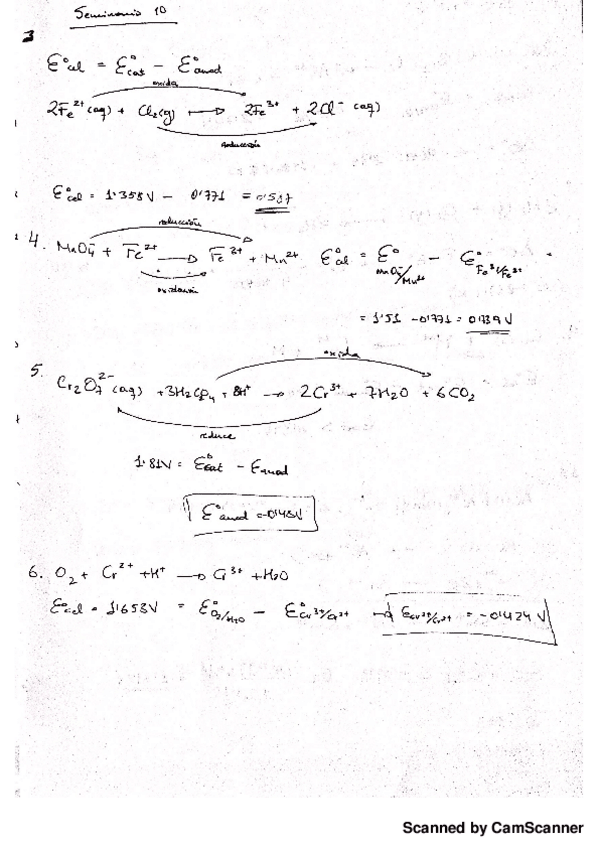 Seminario 10
3
E°cel = E°cat − E°anod
oxida
2Fe²⁺(aq) + Cl₂(g) ⟶ 2Fe³⁺ + 2Cl⁻ (aq)
reducción
E°cel = 1'358V − 0'771 = 0'587
reducción
4. MnO₄⁻ + Fe²⁺ ⟶ Fe³⁺ + Mn²⁺ E°cel = E° MnO₄⁻/Mn²⁺ − E° Fe³⁺/Fe²⁺ =
oxidación
= 1'51 − 0'771 = 0'739 V
oxida
5. Cr₂O₇²⁻(aq) + 3H₂C₂O₄ + 8H⁺ → 2Cr³⁺ + 7H₂O + 6CO₂
reduce
1'81V = E°cat − Eanod
E°anod = −0'48V
6. O₂ + Cr²⁺ + H⁺ ⟶ Cr³⁺ + H₂O
E°cel = 1'653V = E°O₂/H₂O − E°Cr³⁺/Cr²⁺ → ECr³⁺/Cr²⁺ = −0'424 V
Scanned by CamScanner